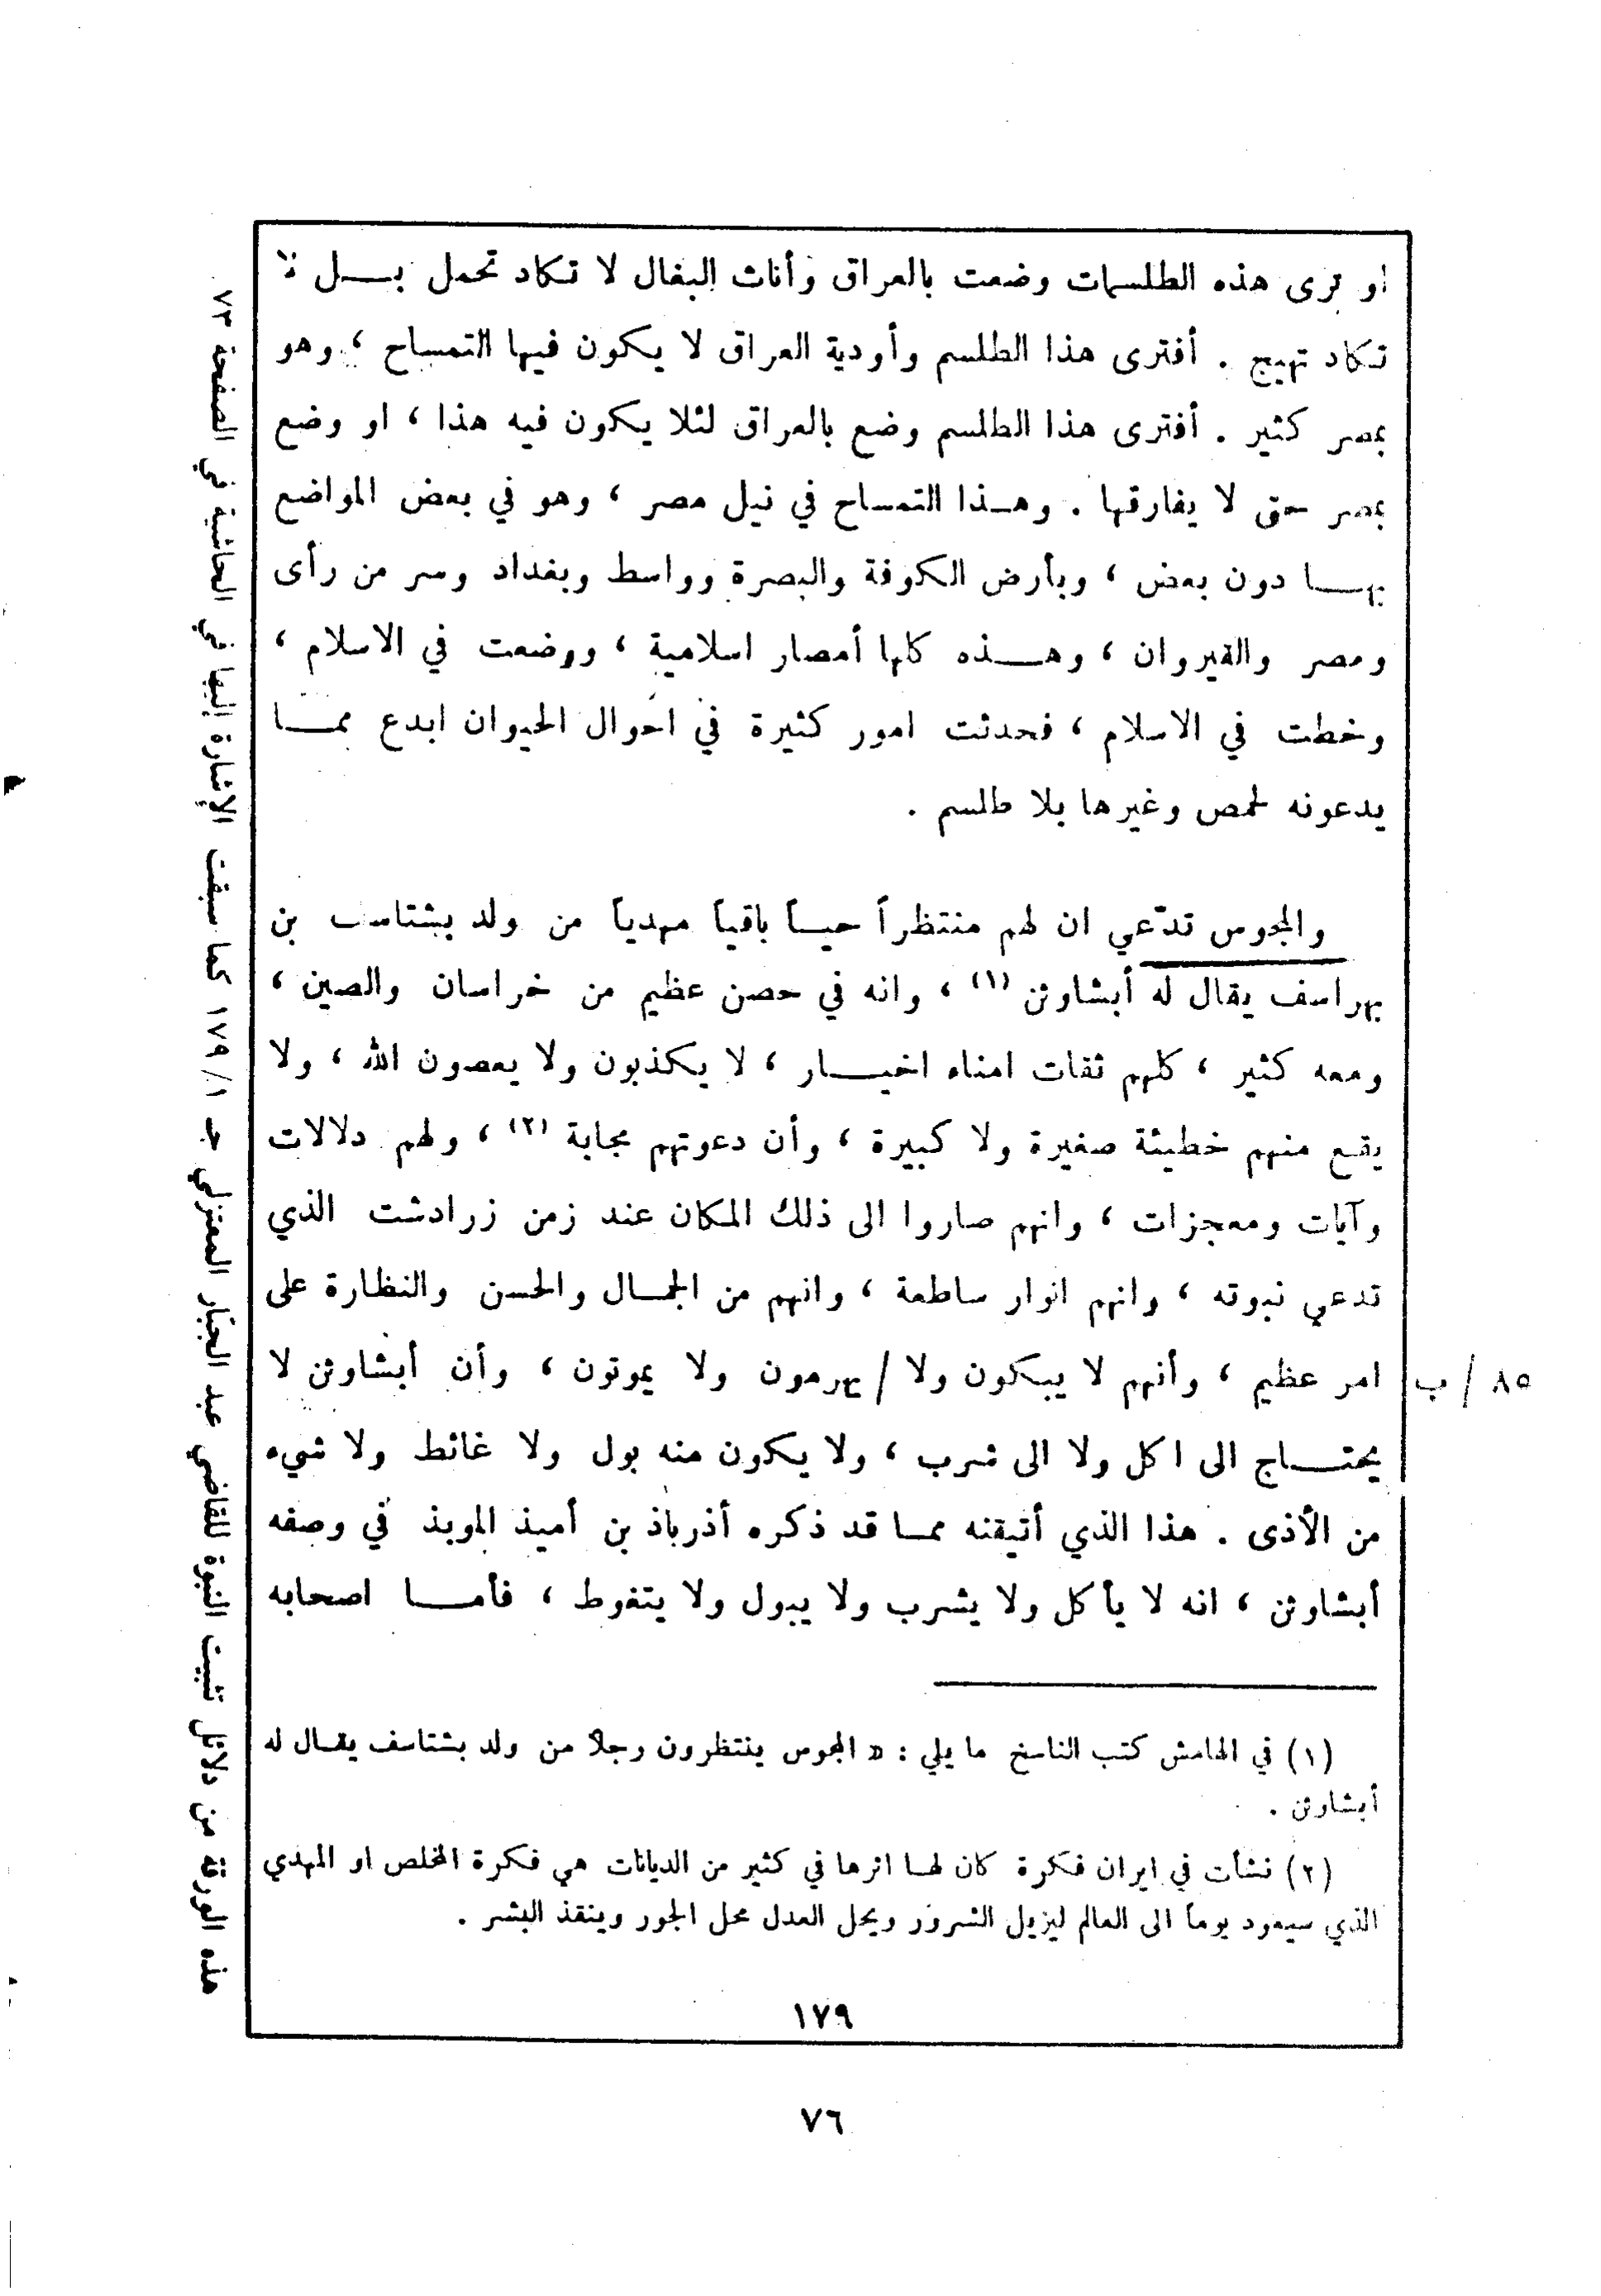 او ترى هذه الطلسمات وضعت بالعراق وأناث البغال لا تكاد تحمل بــل لا
تكاد تهيج . أفترى هذا الطلسم وأودية العراق لا يكون فيها التمساح ، وهو
بمصر كثير . أفترى هذا الطلسم وضع بالعراق لئلا يكون فيه هذا ، او وضع
بمصر حتى لا يفارقها . وهــذا التمساح في نيل مصر ، وهو في بعض المواضع
بهــا دون بعض ، وبأرض الكوفة والبصرة وواسط وبغداد وسر من رأى
ومصر والقيروان ، وهــذه كلها أمصار اسلامية ، ووضعت في الاسلام ،
وخطت في الاسلام ، فحدثت امور كثيرة في احوال الحيوان ابدع ممــا
يدعونه لحمص وغيرها بلا طلسم .
والمجوس تدّعي ان لهم منتظراً حيــاً باقياً مهدياً من ولد بشتاسف بن
بهراسف يقال له أبشاوثن (١) ، وانه في حصن عظيم من خراسان والصين ،
ومعه كثير ، كلهم ثقات امناء اخيــار ، لا يكذبون ولا يعصون الله ، ولا
يقــع منهم خطيئة صغيرة ولا كبيرة ، وأن دعوتهم مجابة (٢) ، ولهم دلالات
وآيات ومعجزات ، وانهم صاروا الى ذلك المكان عند زمن زرادشت الذي
تدعي نبوته ، وانهم انوار ساطعة ، وانهم من الجمــال والحسن والنظارة على
امر عظيم ، وأنهم لا يبكون ولا / يهرمون ولا يموتون ، وأن أبشاوثن لا
٨٥ / ب
يحتــاج الى اكل ولا الى شرب ، ولا يكون منه بول ولا غائط ولا شيء
من الأذى . هذا الذي أتيقنه ممــا قد ذكره أذرباذ بن أميذ الموبذ في وصفه
أبشاوثن ، انه لا يأكل ولا يشرب ولا يبول ولا يتغوط ، فأمــا اصحابه
(١) في الهامش كتب الناسخ ما يلي : « المجوس ينتظرون رجلاً من ولد بشتاسف يقــال له
أبشاوثن .
(٢) نشأت في ايران فكرة كان لهــا اثرها في كثير من الديانات هي فكرة المخلص او المهدي
الذي سيعود يوماً الى العالم ليزيل الشرور ويحل العدل محل الجور وينقذ البشر .
١٧٩
٧٦
هذه الورقة من دلائل تثبيت النبوة للقاضي عبد الجبّار المعتزلي جـ ١٧٩/١ كما سبقت الإشارة إليها في الحاشية في الصفحة ٧٣